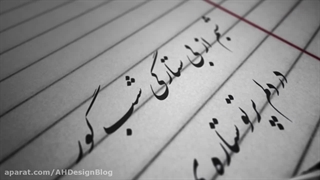 شهر از بی ستارگی شب کور
در دلم پرتو ستاره ی
aparat.com/AHDesignBlog